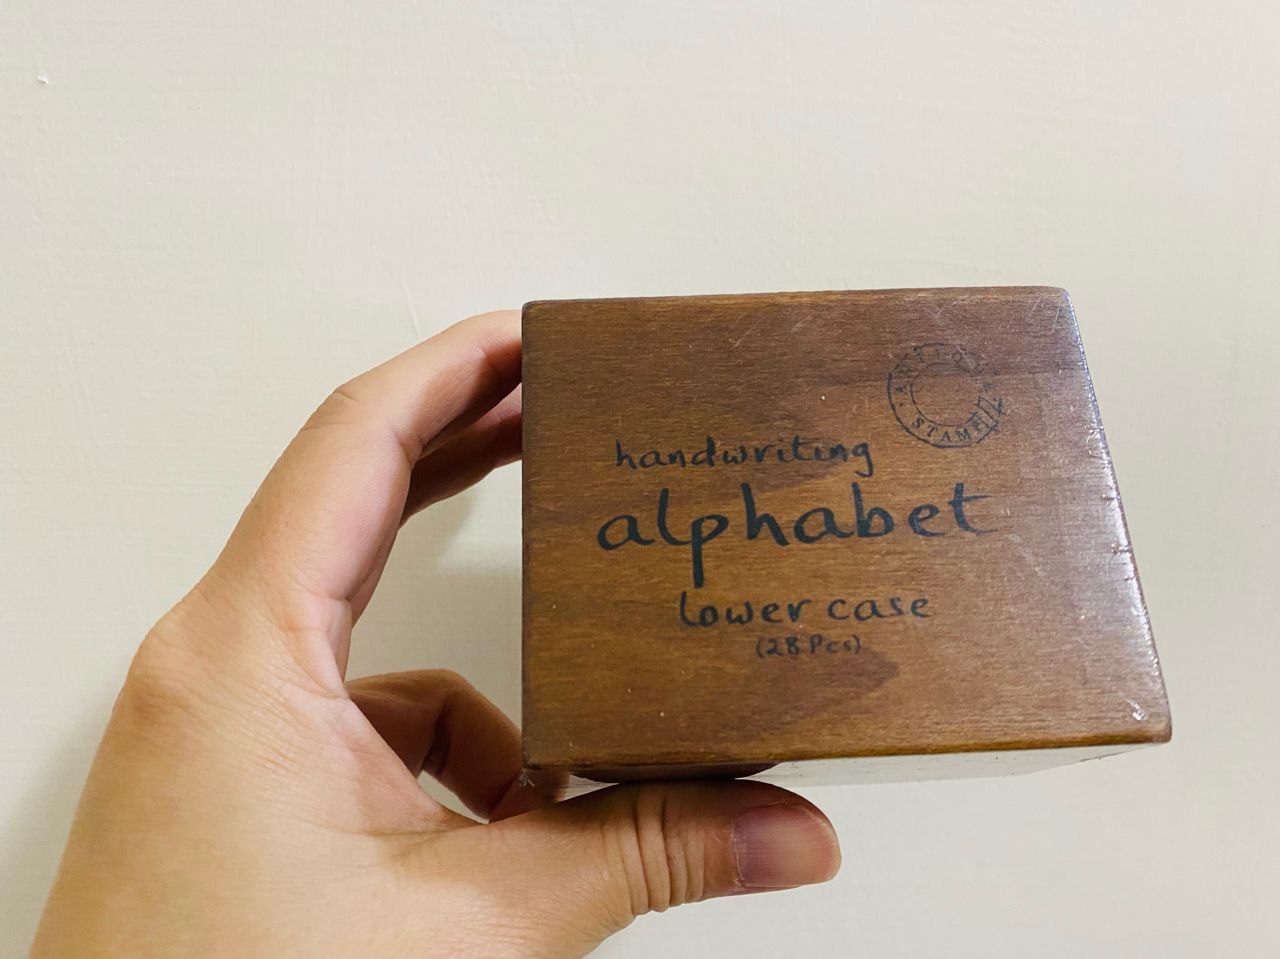 handwriting
alphabet
lower case
(28 Pcs)
STAMP